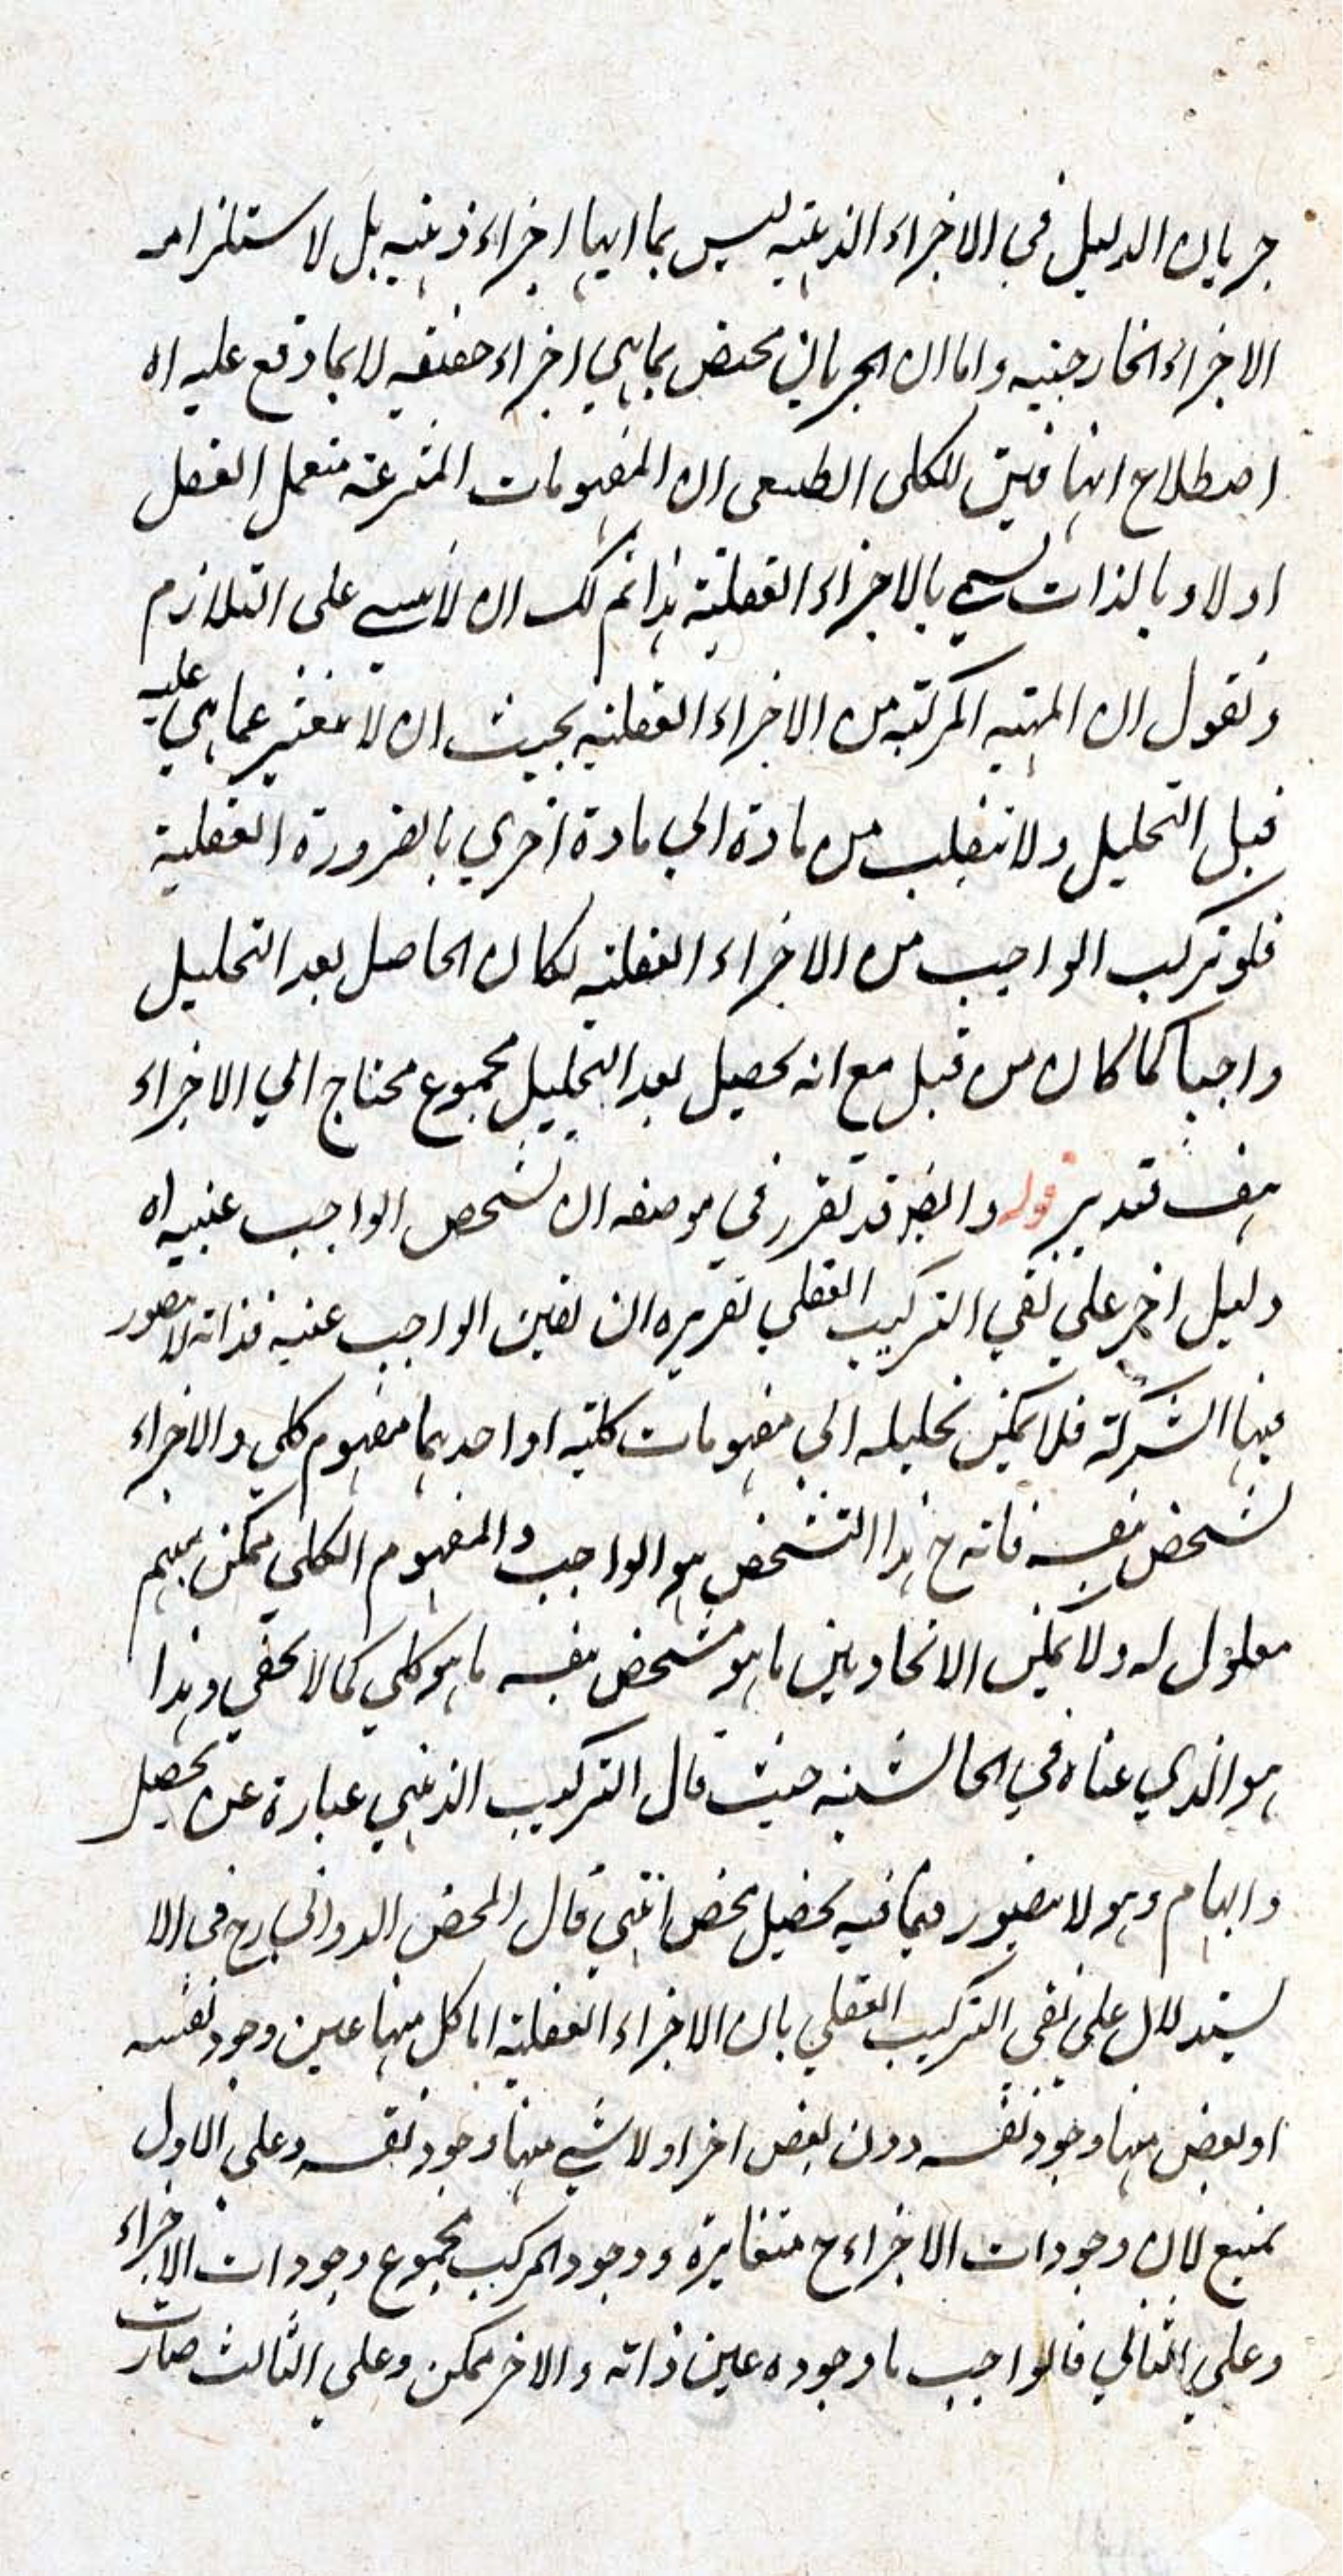 جريان الدليل في الاجزاء الذهنيه ليس بما انها اجزاء ذهنيه بل لاستلزامه
الاجزاء الخارجيه واما ان الجريان مختص بما هي اجزاء حقيقه لا بما وقع عليه اه
اصطلاح ايساغوجي للكلي الطبعي ان المفهومات المنتزعة العقل
اولا وبالذات يسمى بالاجزاء العقلية هذا ثم لك ان لا نبني على التلازم
ونقول ان المهيه المركبه من الاجزاء العقليه بحيث ان لا تتغير عما هي عليه
قبل التحليل ولا تنقلب من مادة الي مادة اخري بالضرورة العقلية
فلو تركب الواجب من الاجزاء العقليه لكان الحاصل بعد التحليل
واجبا كما كان من قبل مع انه يحصل بعد التحليل مجموع محتاج الي الاجزاء
هف تدبر قوله وايضا قد تقرر في موضعه ان تشخص الواجب عينيه اه
دليل اخر علي نفي التركيب العقلي تقريره ان تعين الواجب عينه فذاته لا يتصور
فيها الشركة فلا يمكن تحليله الي مفهومات كلية او احدهما مفهوم كلي والاجزاء
تشخص بنفسه فانه ح هذا التشخص هو الواجب والمفهوم الكلي ممكن مبهم
معلول له ولا يمكن الاتحاد بين ما هو متشخص بنفسه ما هو كلي كما لا يخفي وهذا
هو الذي عناه في الحاشيه حيث قال التركيب الذهني عبارة عن تحصيل
وابهام وهو لا يتصور فيما فيه تحصيل محض انتهي قال المحقق الدواني رح في الا
ستدلال علي نفي التركيب العقلي بان الاجزاء العقلية اما كل منها عين وجود نفسه
او بعض منها وجود نفسه دون بعض اخر او لا شي منها وجود نفسه وعلي الاول
يمنع لان وجودات الاجزاء ح متغايرة ووجود المركب مجموع وجودات الاجزاء
وعلي الثاني فالواجب ما وجوده عين ذاته والاخر ممكن وعلي الثالث صارت